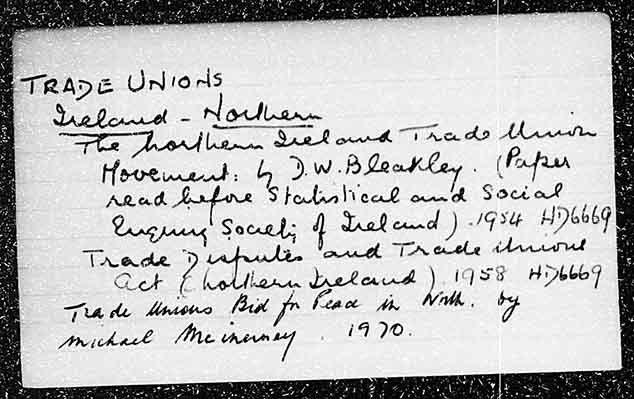 TRADE UNIONS
Ireland - Northern
The Northern Ireland Trade Union
Movement: by D.W. Bleakley. (Paper
read before Statistical and Social
Enquiry Society of Ireland). 1954 HD6669
Trade Disputes and Trade Unions
Act (Northern Ireland) 1958 HD6669
Trade Unions Bid for Peace in North. by
Michael McInerney. 1970.